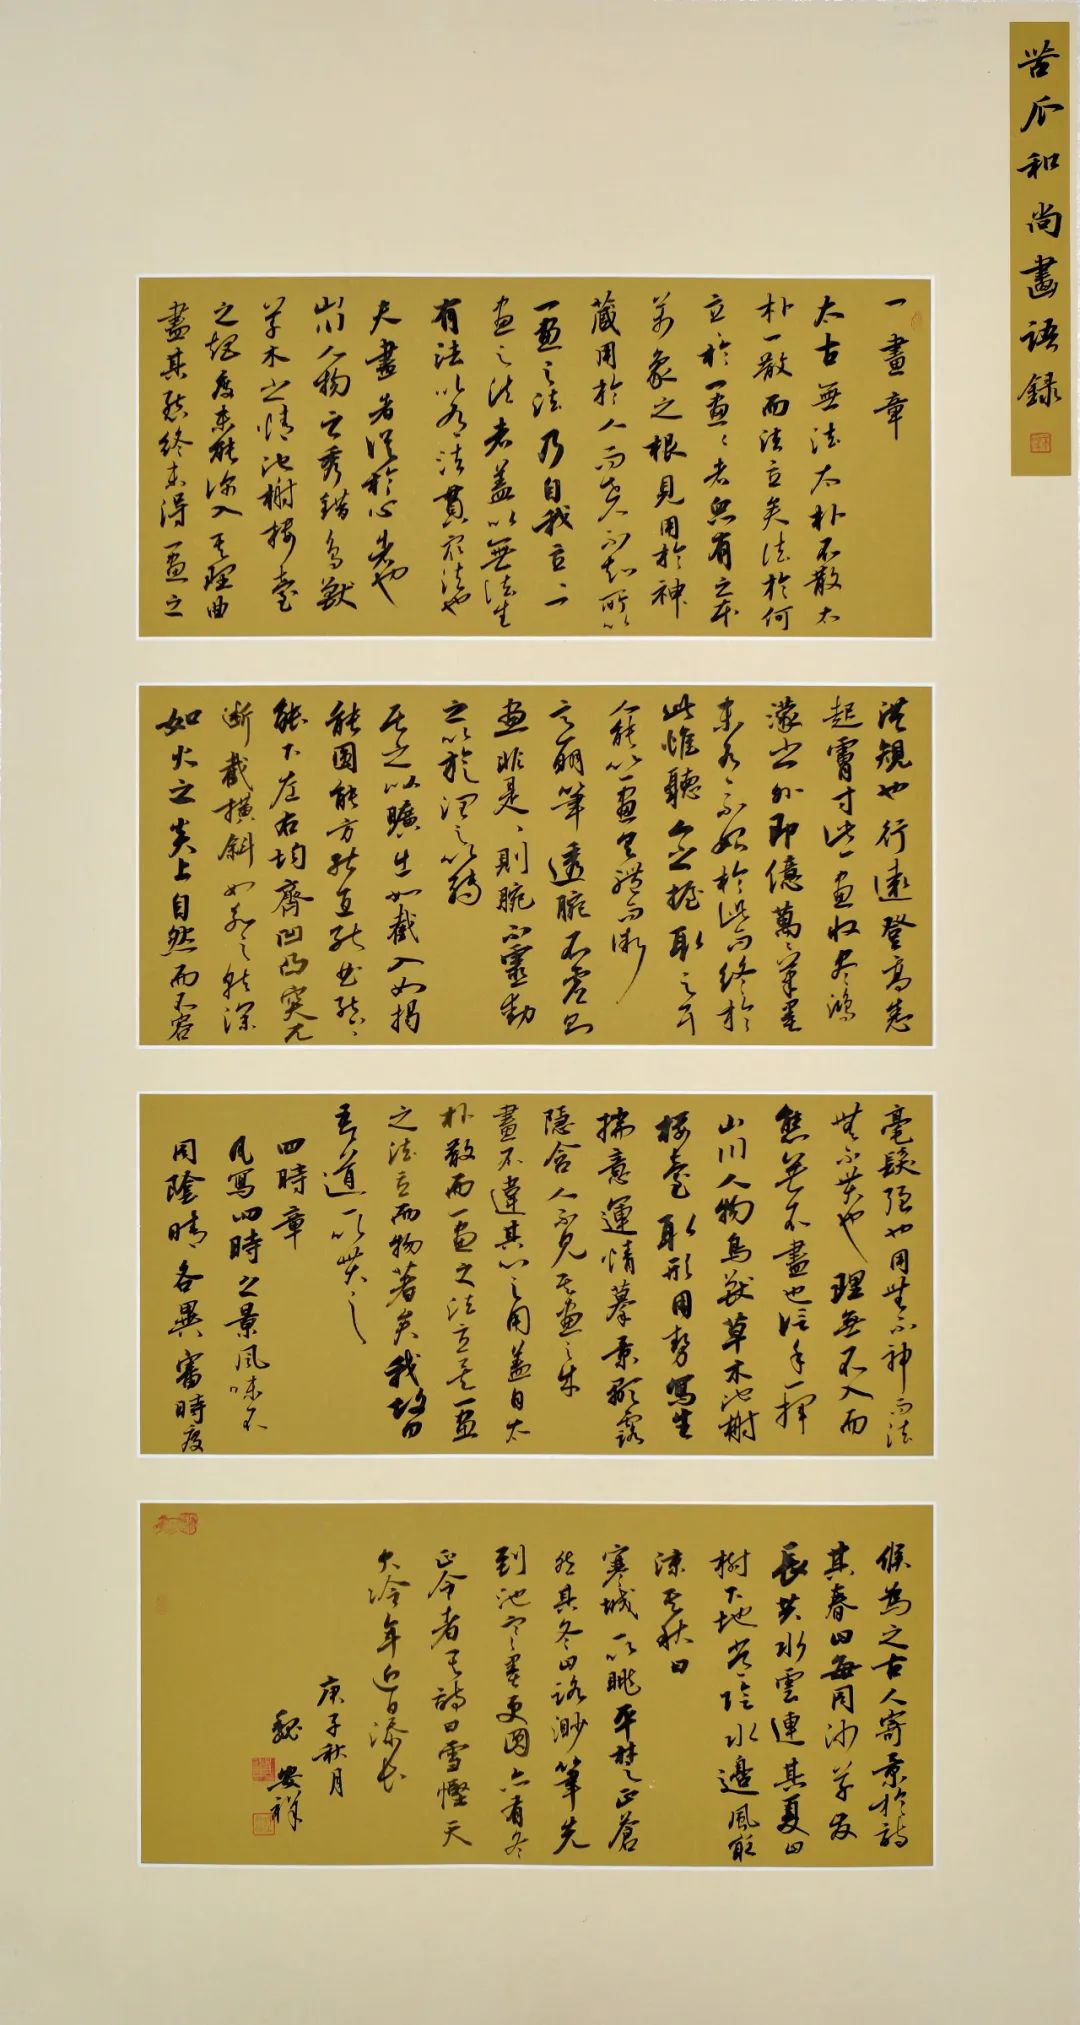 苦瓜和尚畫語録
一畫章
太古無法太朴不散太
朴一散而法立矣法於何
立於一畫一畫者衆有之本
萬象之根見用於神
藏用於人而世人不知所以
一畫之法乃自我立立一
畫之法者蓋以無法生
有法以有法貫衆法也
夫畫者從於心者也
山川人物之秀錯鳥獸
草木之情池榭樓臺
之矩度未能深入其理曲
盡其態終未得一畫之
洪規也行遠登高悉
起膚寸此一畫收盡鴻
濛之外即億萬萬筆墨
未有不始於此而終於
此惟聽人之握取之耳
人能以一畫具體而微
意明筆透腕不虚則
畫非是非是則腕不靈動
之以旋潤之以轉
居之以曠出如截入如揭
能圓能方能直能曲能上
能下左右均齊凹凸突兀
斷截横斜如水之就深
如火之炎上自然而不容
毫髮强也用無不神而法
無不貫也理無不入而
態無不盡也信手一揮
山川人物鳥獸草木池榭
樓臺取形用勢寫生
揣意運情摹景顯露
隱含人不見其畫之成
畫不違其心之用蓋自太
朴散而一畫之法立矣一畫
之法立而萬物著矣我故曰
吾道一以貫之
四時章
凡寫四時之景風味不
同陰晴各異審時度
候為之古人寄景於詩
其春曰每同沙草發
長共水雲連其夏曰
樹下地常陰水邊風最
涼其秋曰
寒城一以眺平楚正蒼
然其冬曰路渺筆先
到池寒墨更圓亦有冬
不正令者其詩曰雪慳天
欠冷年近日添長
庚子秋月
魏安祥